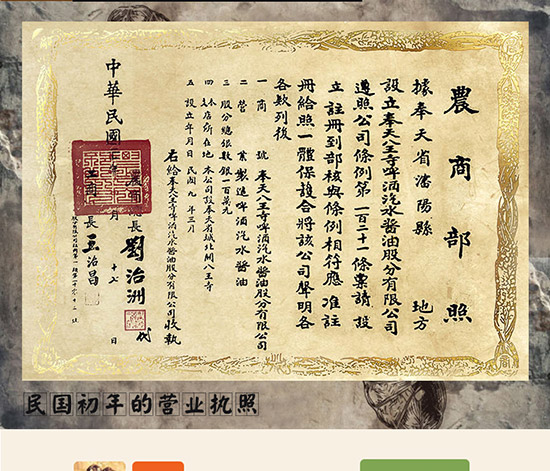 農商部照
據奉天省瀋陽縣 地方
設立奉天八王寺啤酒汽水醬油股份有限公司
遵照公司條例第一百二十一條禀請設
立註冊到部核與條例相符應准註
冊給照一體保護合將該公司聲明各
各欵列後
一 商 號 奉天八王寺啤酒汽水醬油股份有限公司
二 營 業 製造啤酒汽水醬油
三 股份總銀數 銀一百萬元
四 本支店所在地 本公司設奉天省城北關八王寺
五 設立年月日 民國九年三月
右給奉天八王寺啤酒汽水醬油股份有限公司收執
長 劉治洲 代
長 王治昌
中華民國 年 月 日
民国初年的营业执照